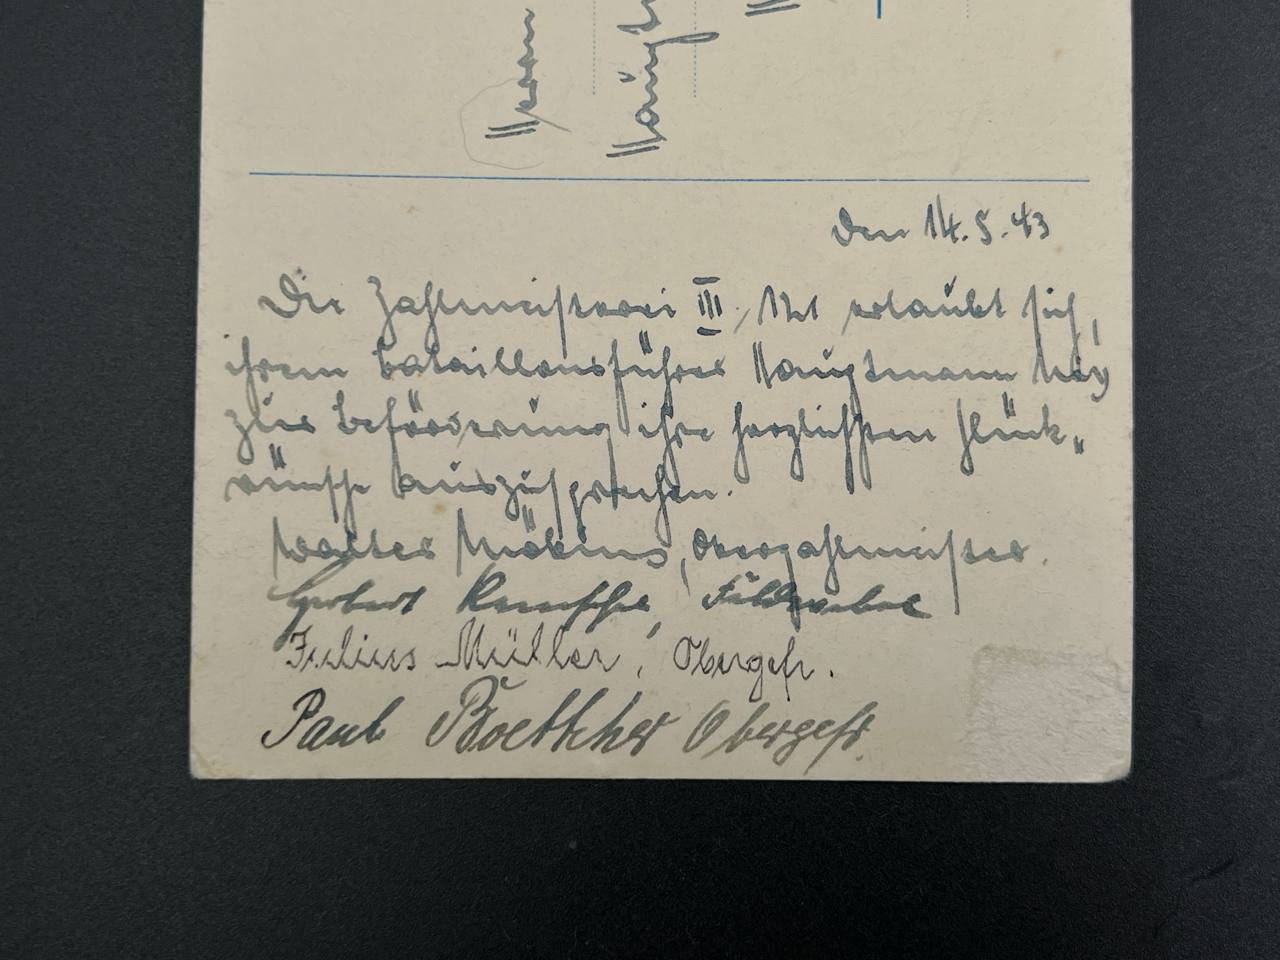 Herrn
Haupt
den 14.5.43
Die Zahlmeisterei III. erlaubt sich,
ihrem Bataillonsführer Hauptmann May
zur Beförderung ihre herzlichsten Glück„
wünsche auszusprechen.
Walter Möbius, Oberzahlmeister.
Herbert Feldwebel
Julius Müller, Obergefr.
Paul Boettcher Obergefr.